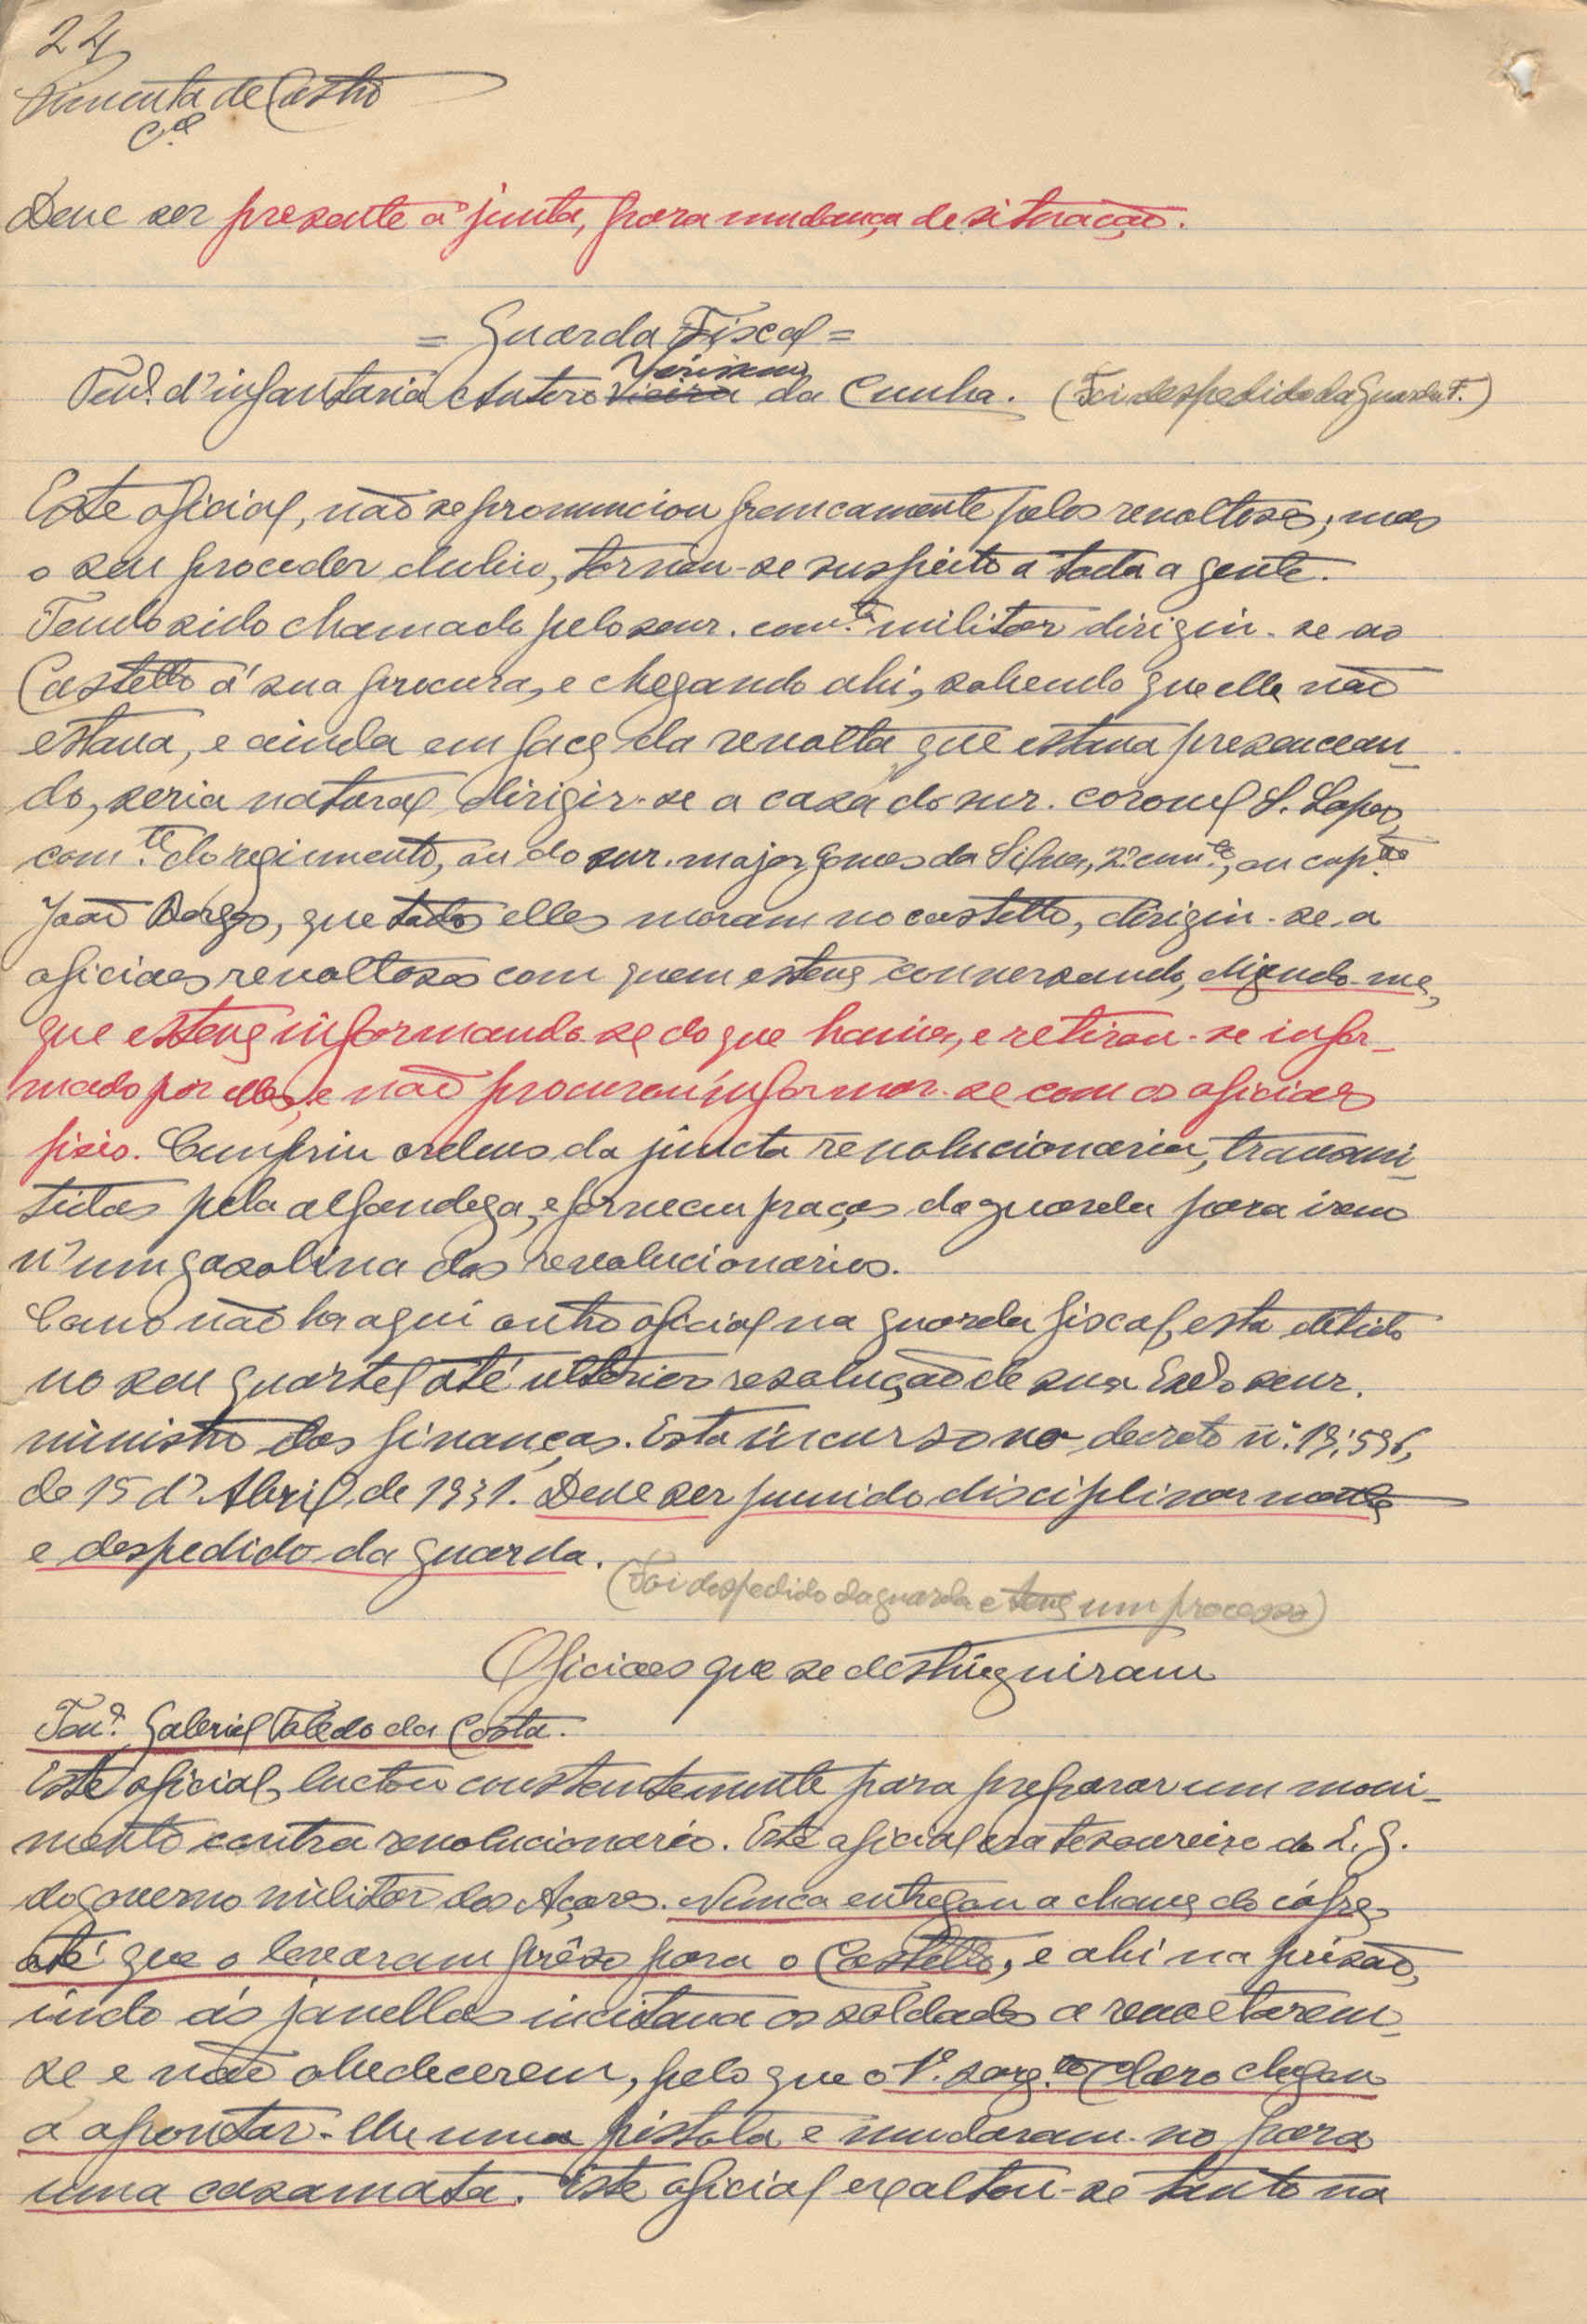 24
Pimenta de Castro
C.el
Deve ser presente á junta, para mudança de situação.
= Guarda Fiscal =
Verissimo
Ten.e d'infantaria Antero Vieira da Cunha. (Foi despedido da Guarda F.)
Este oficial, não se pronunciou francamente pelos revoltosos; mas
o seu proceder dubio, tornou-se suspeito a toda a gente.
Tendo sido chamado pelo senr. com.te militar dirigiu-se ao
Castello á sua procura, e chegando ahi, sabendo que elle não
estava, e ainda em face da revolta que estava presencean-
do, seria natural dirigir-se a casa do snr. coronel S. Lopes,
com.te do regimento, ou do snr. major Gomes da Silva, 2.º com.te, ou cap.tão
João Borges, que todos elles moram no castello, dirigiu-se a
oficiaes revoltosos com quem esteve conversando, dizendo-me,
que esteve informando-se do que havia, e retirou-se infor-
mado por elles, e não procurou informar-se com os oficiaes
fieis. Cumpriu ordens da juncta revolucionaria, transmi-
tidas pela alfandega, e forneceu praças da guarda para irem
n'um gasolina dos revolucionarios.
Como não ha aqui outro oficial na guarda fiscal, esta detido
no seu quartel até ulterior resolução de sua Ex.ª o senr.
ministro das finanças. Esta incurso no decreto n.º 19:596,
de 15 d'Abril, de 1931. Deve ser punido disciplinarmente
e despedido da guarda.
(Foi despedido da guarda e teve um processo)
Oficiaes que se destinguiram
Ten.e Gabriel Toledo da Costa.
Este oficial luctou constantemente para preparar um movi-
mento contra revolucionario. Este oficial era tesoureiro do Q. G.
do governo militar dos Açores. Nunca entregou a chave do cófre,
até que o levaram prêso para o Castello, e ahi na prisão,
indo ás janellas incitava os soldados a revoltarem-
se e não obedecerem, pelo que o 1.º sarg.to Claro chegou
a apontar-lhe uma pistola e mudaram-no para
uma casamata. Este oficial exaltou-se tanto na